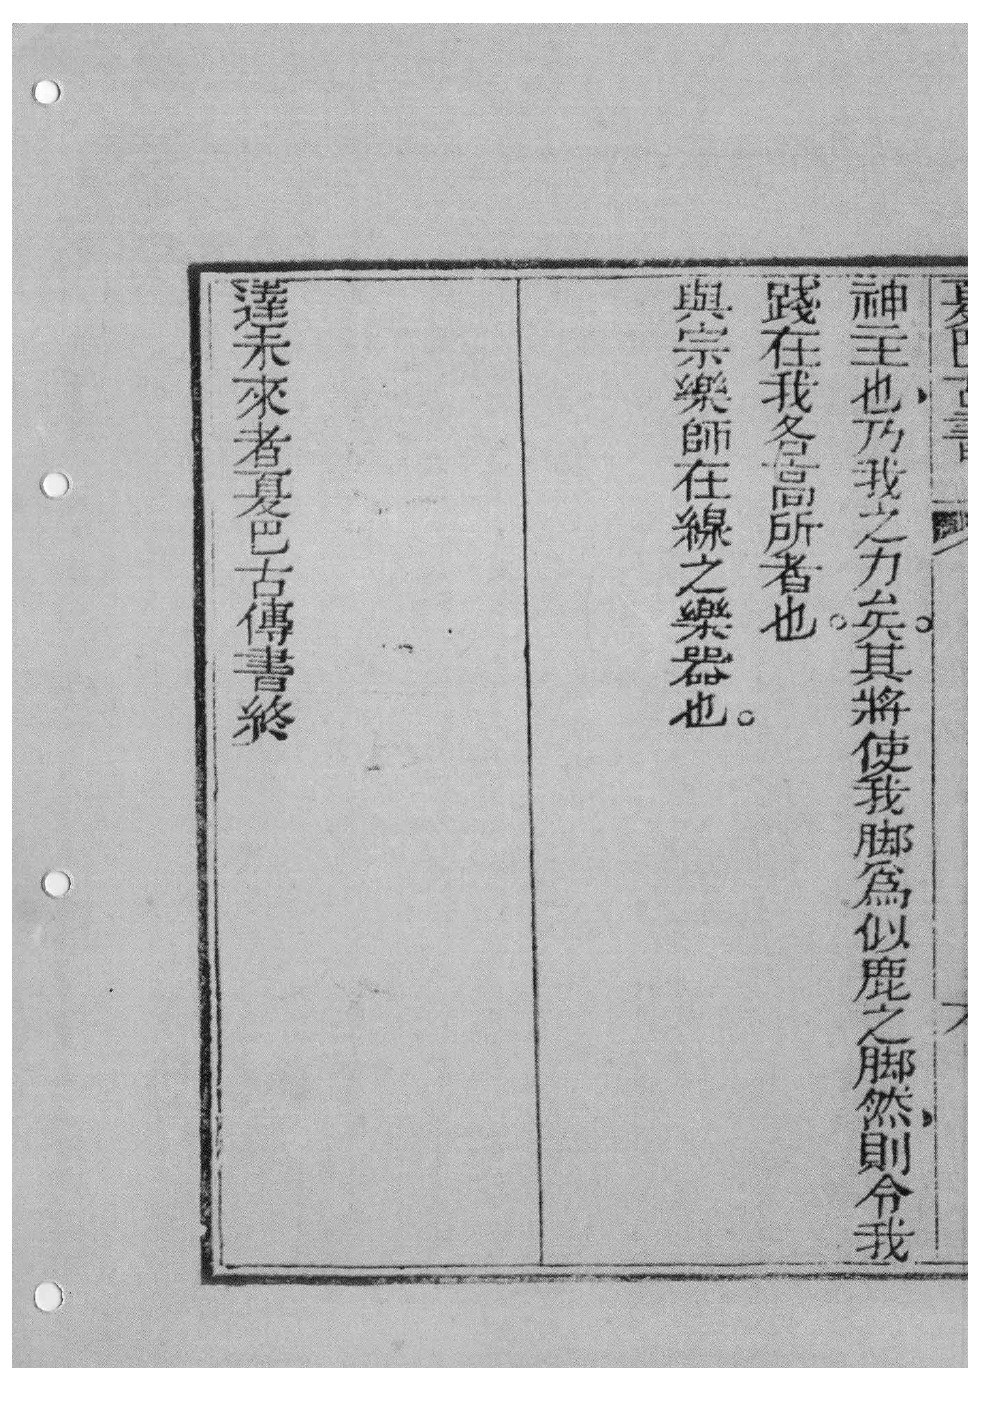 夏巴古書
神主也乃我之力矣。其將使我脚爲似鹿之脚然則令我
踐在我各高所者也。
與宗樂師在線之樂器也。
達未來者夏巴古傳書終